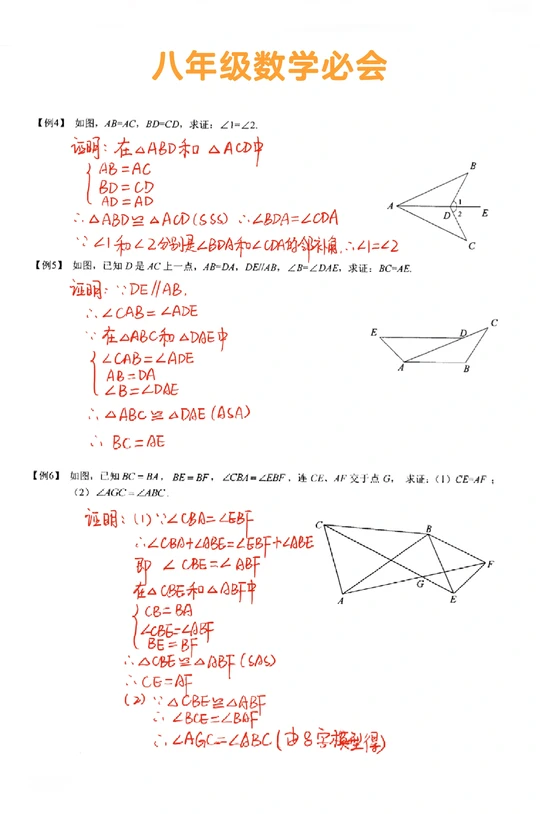 八年级数学必会
【例4】 如图，AB=AC，BD=CD，求证：∠1=∠2.
证明：在△ABD和△ACD中
AB=AC
BD=CD
AD=AD
∴△ABD≌△ACD(SSS) ∴∠BDA=∠CDA
∵∠1和∠2分别是∠BDA和∠CDA的邻补角.∴∠1=∠2
A
B
D
1
2
E
C
【例5】 如图，已知D是AC上一点，AB=DA，DE//AB，∠B=∠DAE，求证：BC=AE.
证明：∵DE//AB.
∴∠CAB=∠ADE
∵在△ABC和△DAE中
∠CAB=∠ADE
AB=DA
∠B=∠DAE
∴△ABC≌△DAE(ASA)
∴BC=AE
E
D
C
A
B
【例6】 如图，已知BC=BA，BE=BF，∠CBA=∠EBF，连CE、AF交于点G，求证：（1）CE=AF；
（2）∠AGC=∠ABC.
证明：(1)∵∠CBA=∠EBF
∴∠CBA+∠ABE=∠EBF+∠ABE
即 ∠CBE=∠ABF
在△CBE和△ABF中
CB=BA
∠CBE=∠ABF
BE=BF
∴△CBE≌△ABF(SAS)
∴CE=AF
(2)∵△CBE≌△ABF
∴∠BCE=∠BAF
∴∠AGC=∠ABC(由8字模型得)
C
B
F
G
A
E